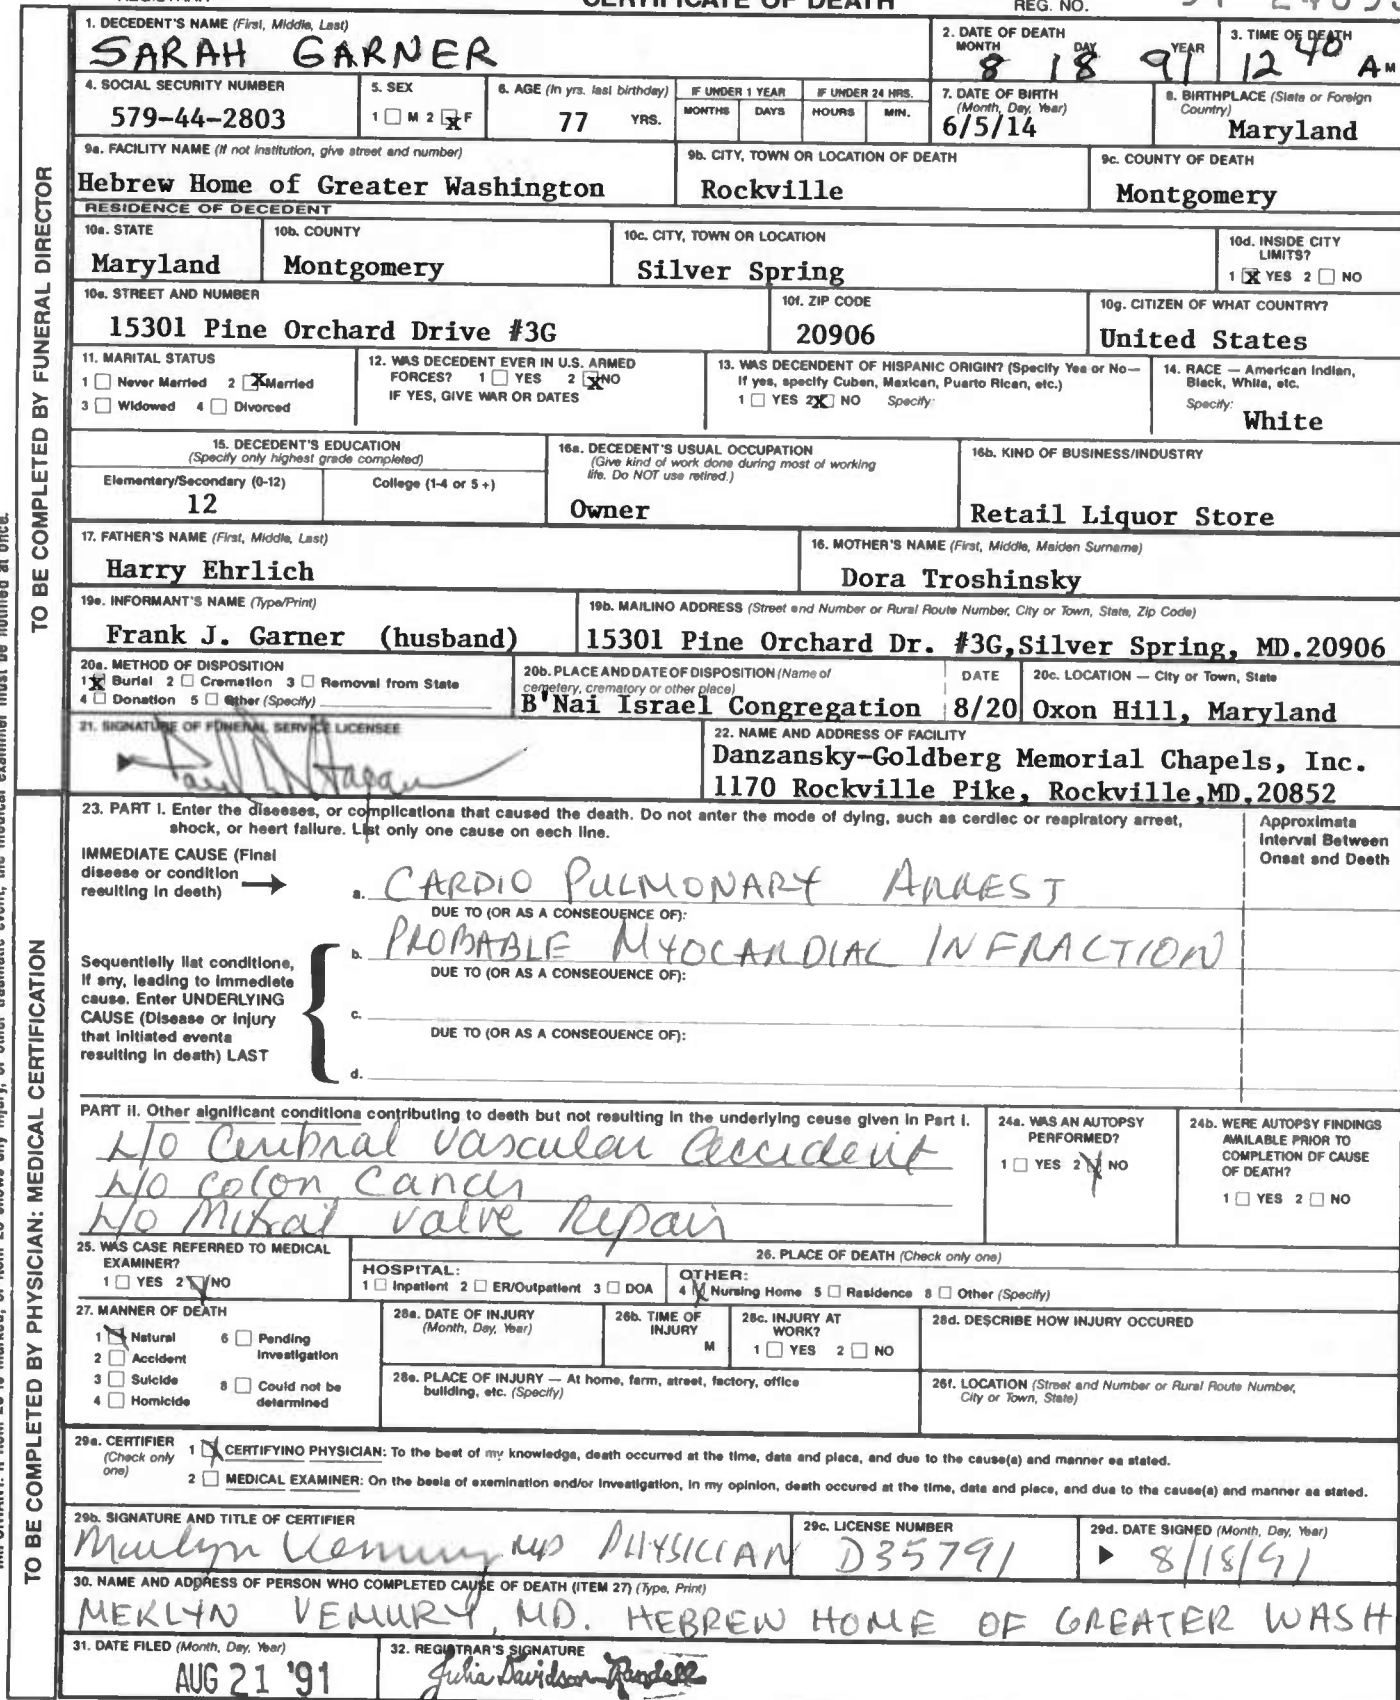 CERTIFICATE OF DEATH
REG. NO.
1. DECEDENT'S NAME (First, Middle, Last)
SARAH GARNER
2. DATE OF DEATH
MONTH DAY YEAR
8 18 91
3. TIME OF DEATH
12 40 A M
4. SOCIAL SECURITY NUMBER
579-44-2803
5. SEX
1 M 2 X F
6. AGE (In yrs. last birthday)
77 YRS.
IF UNDER 1 YEAR
MONTHS DAYS
IF UNDER 24 HRS.
HOURS MIN.
7. DATE OF BIRTH
(Month, Day, Year)
6/5/14
8. BIRTHPLACE (State or Foreign
Country)
Maryland
9a. FACILITY NAME (If not institution, give street and number)
Hebrew Home of Greater Washington
9b. CITY, TOWN OR LOCATION OF DEATH
Rockville
9c. COUNTY OF DEATH
Montgomery
RESIDENCE OF DECEDENT
10a. STATE
Maryland
10b. COUNTY
Montgomery
10c. CITY, TOWN OR LOCATION
Silver Spring
10d. INSIDE CITY
LIMITS?
1 X YES 2 NO
10e. STREET AND NUMBER
15301 Pine Orchard Drive #3G
10f. ZIP CODE
20906
10g. CITIZEN OF WHAT COUNTRY?
United States
11. MARITAL STATUS
1 Never Married 2 X Married
3 Widowed 4 Divorced
12. WAS DECEDENT EVER IN U.S. ARMED
FORCES? 1 YES 2 X NO
IF YES, GIVE WAR OR DATES
13. WAS DECENDENT OF HISPANIC ORIGIN? (Specify Yes or No—
If yes, specify Cuban, Mexican, Puerto Rican, etc.)
1 YES 2 X NO Specify:
14. RACE — American Indian,
Black, White, etc.
Specify:
White
15. DECEDENT'S EDUCATION
(Specify only highest grade completed)
Elementary/Secondary (0-12) College (1-4 or 5+)
12
16a. DECEDENT'S USUAL OCCUPATION
(Give kind of work done during most of working
life. Do NOT use retired.)
Owner
16b. KIND OF BUSINESS/INDUSTRY
Retail Liquor Store
17. FATHER'S NAME (First, Middle, Last)
Harry Ehrlich
16. MOTHER'S NAME (First, Middle, Maiden Surname)
Dora Troshinsky
19a. INFORMANT'S NAME (Type/Print)
Frank J. Garner (husband)
19b. MAILING ADDRESS (Street and Number or Rural Route Number, City or Town, State, Zip Code)
15301 Pine Orchard Dr. #3G,Silver Spring, MD.20906
20a. METHOD OF DISPOSITION
1 X Burial 2 Cremation 3 Removal from State
4 Donation 5 Other (Specify)
20b. PLACE AND DATE OF DISPOSITION (Name of
cemetery, crematory or other place)
B'Nai Israel Congregation
DATE
8/20
20c. LOCATION — City or Town, State
Oxon Hill, Maryland
21. SIGNATURE OF FUNERAL SERVICE LICENSEE
22. NAME AND ADDRESS OF FACILITY
Danzansky-Goldberg Memorial Chapels, Inc.
1170 Rockville Pike, Rockville,MD.20852
TO BE COMPLETED BY FUNERAL DIRECTOR
23. PART I. Enter the diseases, or complications that caused the death. Do not enter the mode of dying, such as cardiac or respiratory arrest,
shock, or heart failure. List only one cause on each line.
Approximate
Interval Between
Onset and Death
IMMEDIATE CAUSE (Final
disease or condition
resulting in death)
a. CARDIO PULMONARY ARREST
DUE TO (OR AS A CONSEQUENCE OF):
b. PROBABLE MYOCARDIAL INFRACTION
DUE TO (OR AS A CONSEQUENCE OF):
Sequentially list conditions,
if any, leading to immediate
cause. Enter UNDERLYING
CAUSE (Disease or injury
that initiated events
resulting in death) LAST
c.
DUE TO (OR AS A CONSEQUENCE OF):
d.
PART II. Other significant conditions contributing to death but not resulting in the underlying cause given in Part I.
H/O Cerebral Vascular Accident
H/O Colon Cancer
H/O Mitral Valve Repair
24a. WAS AN AUTOPSY
PERFORMED?
1 YES 2 NO
24b. WERE AUTOPSY FINDINGS
AVAILABLE PRIOR TO
COMPLETION OF CAUSE
OF DEATH?
1 YES 2 NO
25. WAS CASE REFERRED TO MEDICAL
EXAMINER?
1 YES 2 NO
26. PLACE OF DEATH (Check only one)
HOSPITAL:
1 Inpatient 2 ER/Outpatient 3 DOA
OTHER:
4 Nursing Home 5 Residence 8 Other (Specify)
27. MANNER OF DEATH
1 Natural 6 Pending
Investigation
2 Accident
3 Suicide 8 Could not be
determined
4 Homicide
28a. DATE OF INJURY
(Month, Day, Year)
26b. TIME OF
INJURY
M
28c. INJURY AT
WORK?
1 YES 2 NO
28d. DESCRIBE HOW INJURY OCCURED
28e. PLACE OF INJURY — At home, farm, street, factory, office
building, etc. (Specify)
26f. LOCATION (Street and Number or Rural Route Number,
City or Town, State)
29a. CERTIFIER
(Check only
one)
1 CERTIFYING PHYSICIAN: To the best of my knowledge, death occurred at the time, date and place, and due to the cause(s) and manner as stated.
2 MEDICAL EXAMINER: On the basis of examination and/or investigation, in my opinion, death occured at the time, date and place, and due to the cause(s) and manner as stated.
29b. SIGNATURE AND TITLE OF CERTIFIER
Vemury MD PHYSICIAN
29c. LICENSE NUMBER
D35791
29d. DATE SIGNED (Month, Day, Year)
8/18/91
30. NAME AND ADDRESS OF PERSON WHO COMPLETED CAUSE OF DEATH (ITEM 27) (Type, Print)
MEKLYN VEMURY, MD. HEBREW HOME OF GREATER WASH
31. DATE FILED (Month, Day, Year)
AUG 21 '91
32. REGISTRAR'S SIGNATURE
Julia Davidson-Randall
TO BE COMPLETED BY PHYSICIAN: MEDICAL CERTIFICATION